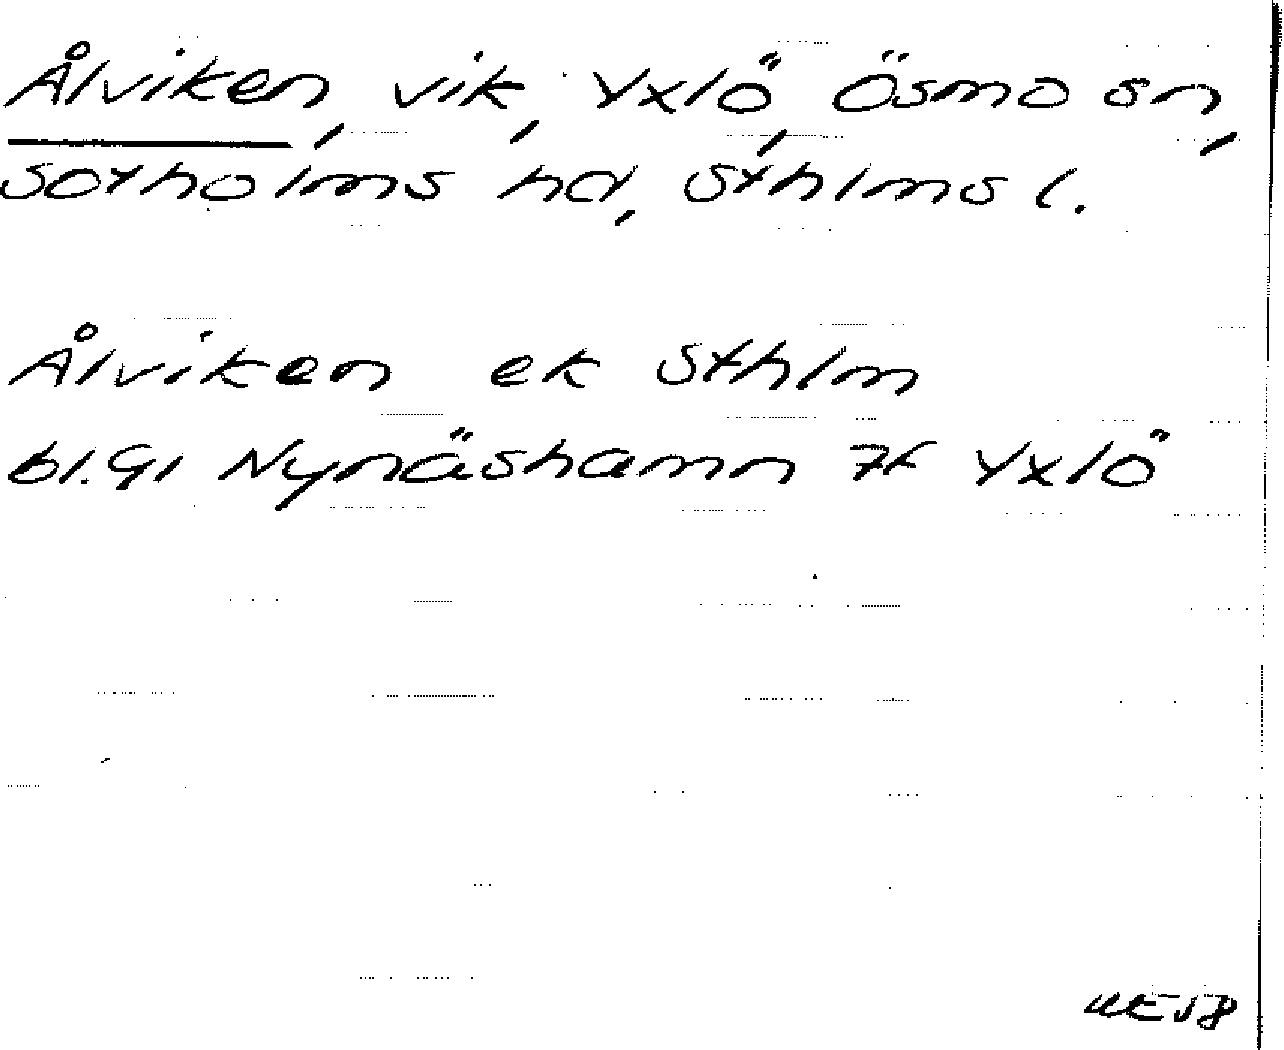 Ålviken, vik, Yxlö, Ösmo sn,
Sotholms hd, Sthlms l.
Ålviken ek Sthlm
bl. 91 Nynäshamn 7f Yxlö